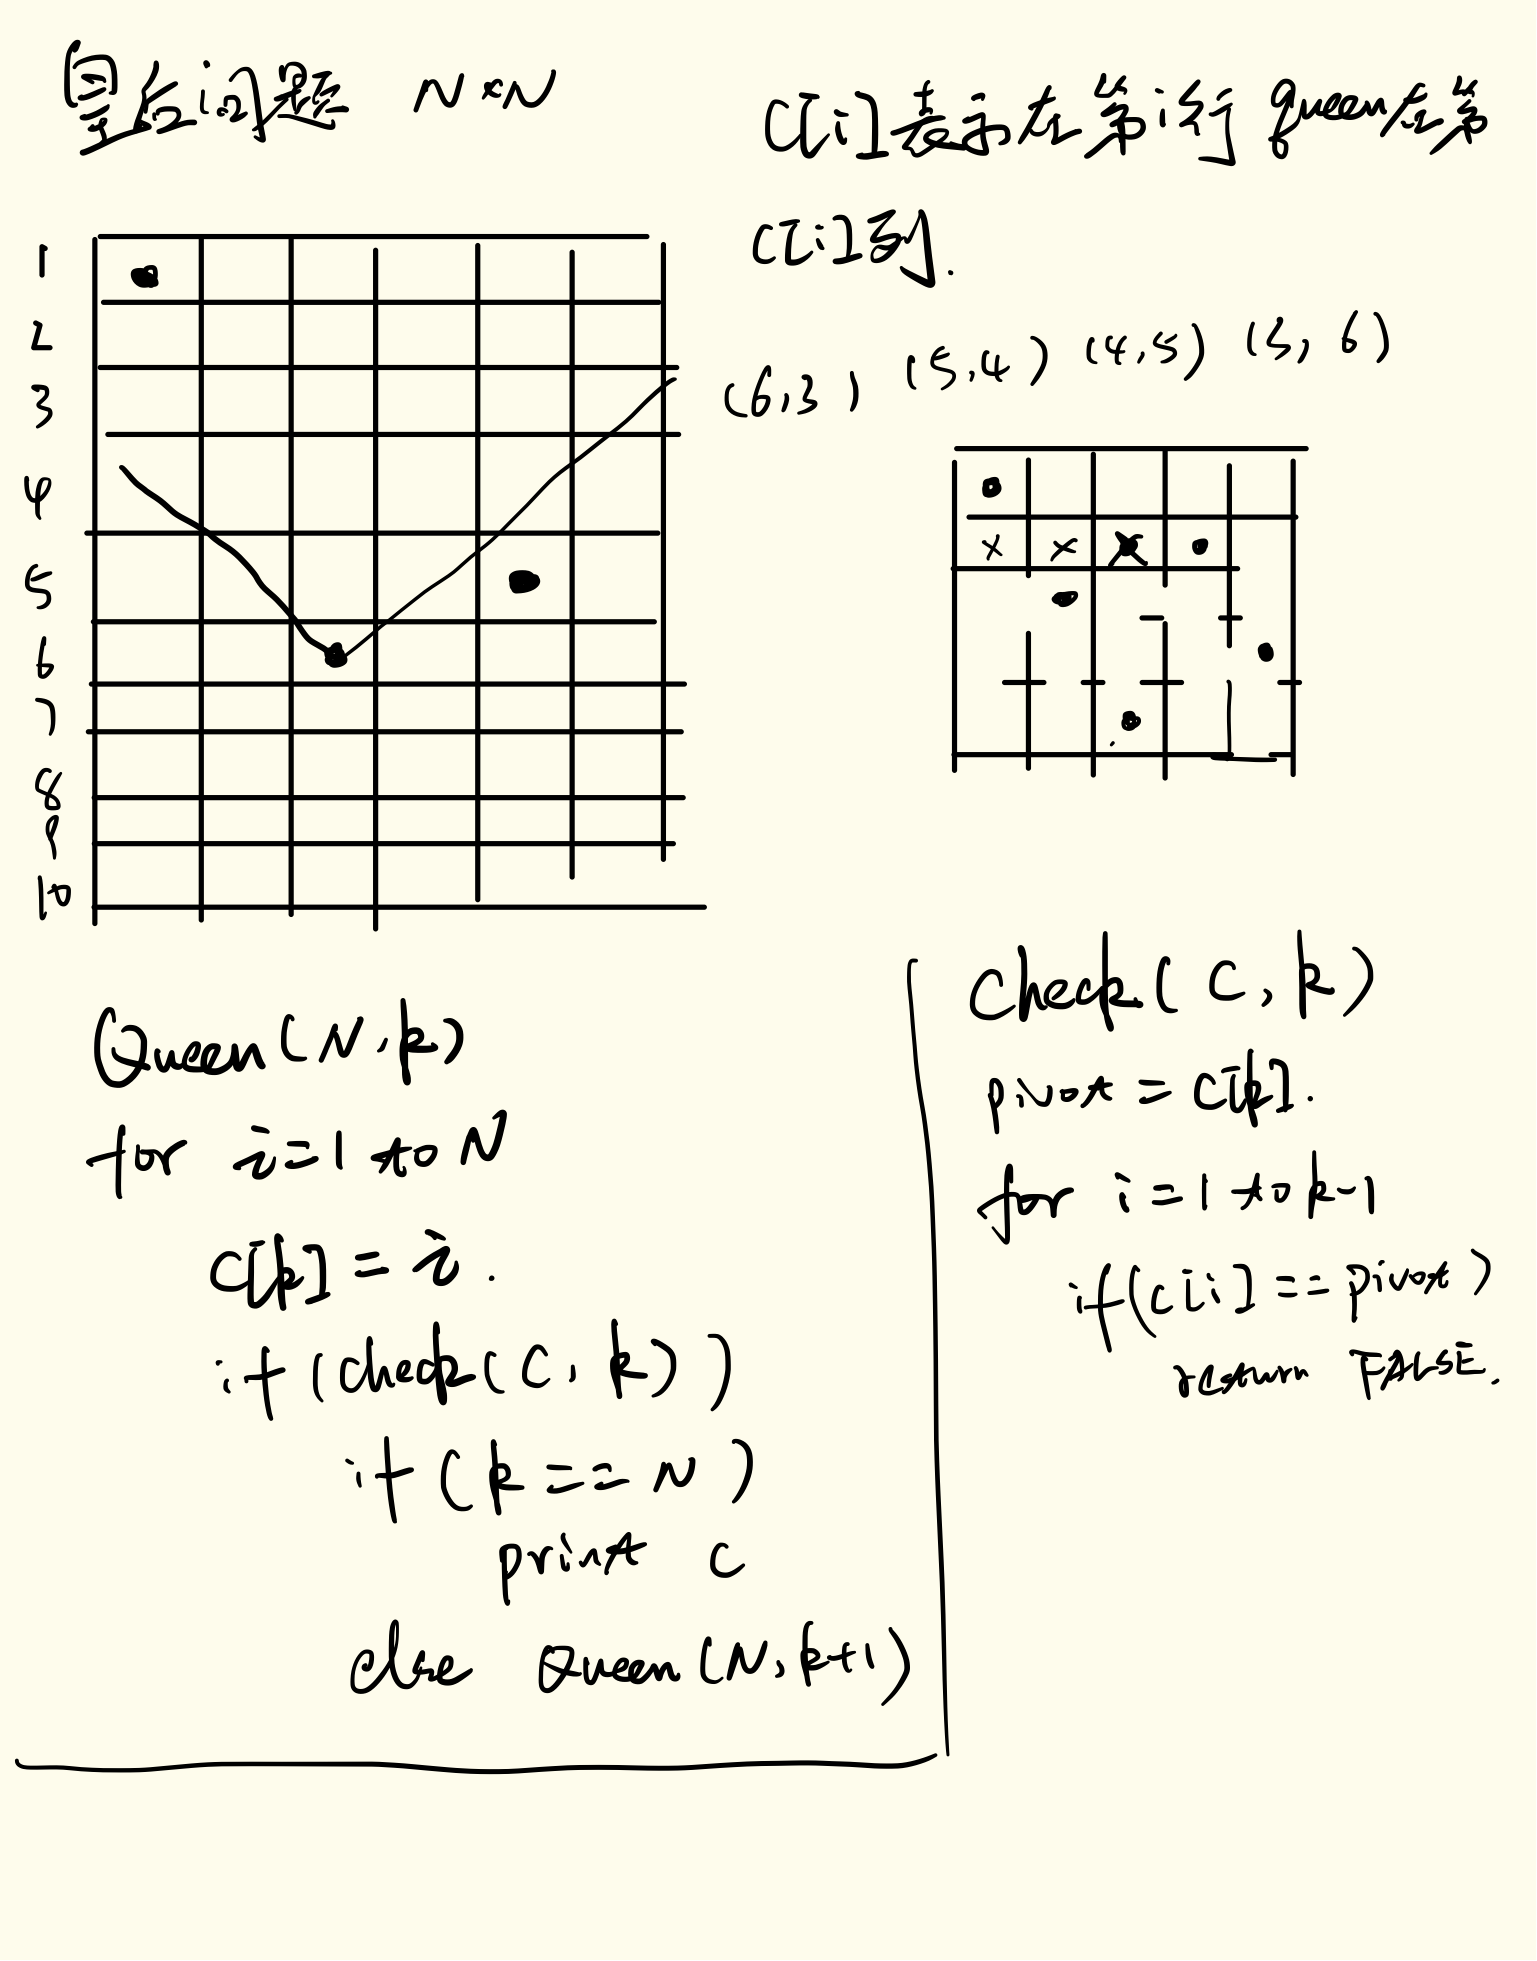 皇后问题 N×N
C[i]表示在第i行queen在第
C[i]列.
1
2
3
4
5
6
7
8
9
10
(6,3) (5,4) (4,5) (3,6)
x x x
Queen(N,k)
for i=1 to N
C[k]=i.
if (check(C,k))
if (k==N)
print C
else Queen(N,k+1)
Check(C,k)
pivot = C[k].
for i=1 to k-1
if(C[i]==pivot)
return FALSE.